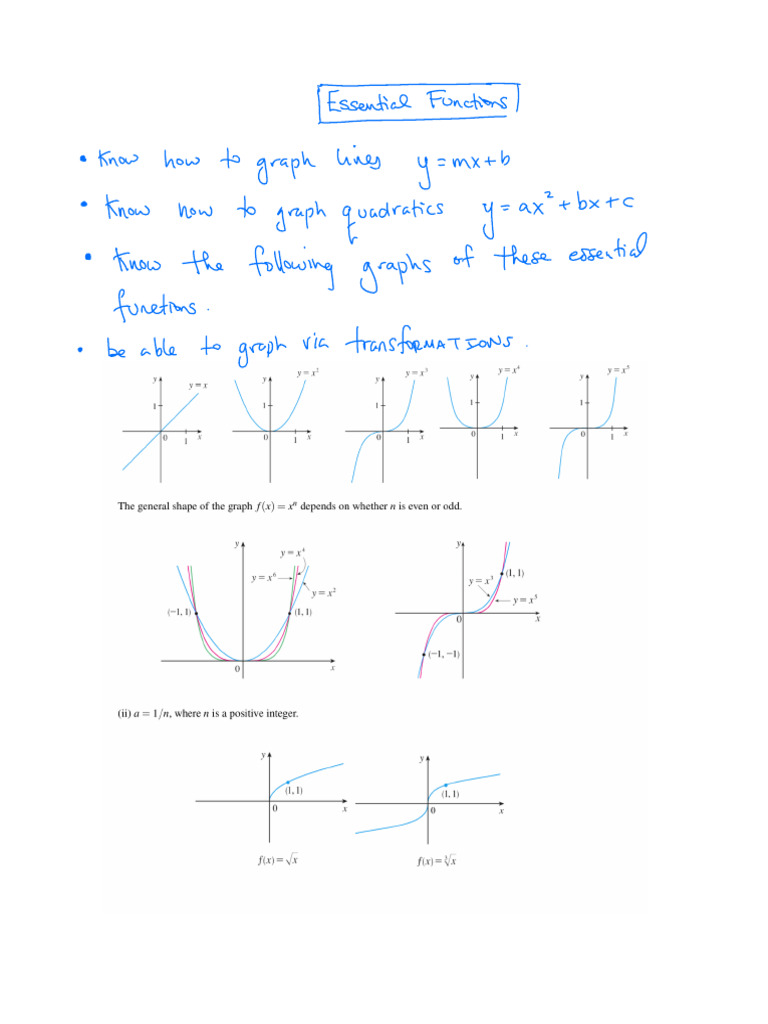 Essential Functions
• Know how to graph lines y = mx + b
• Know how to graph quadratics y = ax² + bx + c
• Know the following graphs of these essential
functions.
• be able to graph via transfORMATIONS.
y = x
y = x²
y = x³
y = x⁴
y = x⁵
y y y y y
1 1 1 1 1
0 1 x 0 1 x 0 1 x 0 1 x 0 1 x
The general shape of the graph f(x) = xⁿ depends on whether n is even or odd.
y
y = x⁴
y = x⁶
y = x²
(−1, 1)
(1, 1)
0
x
y
(1, 1)
y = x³
y = x⁵
0
x
(−1, −1)
(ii) a = 1/n, where n is a positive integer.
y
(1, 1)
0
x
f(x) = √x
y
(1, 1)
0
x
f(x) = ∛x